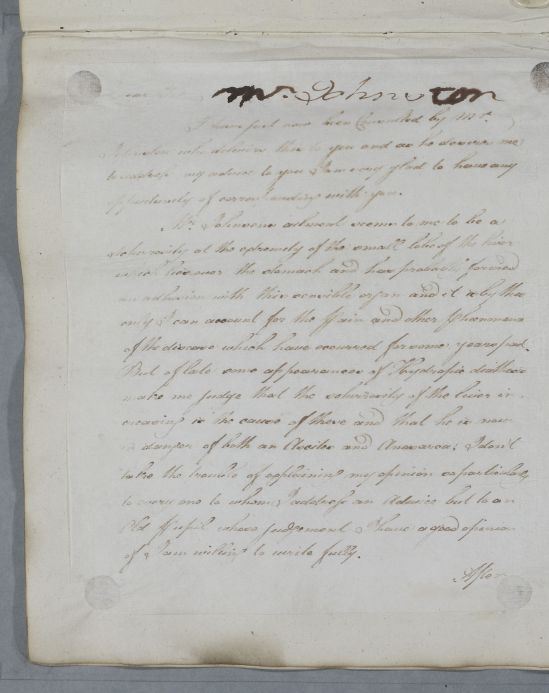 Mr. Johnston
I have just now been Consulted by Mr.
Johnston who delivers this to you and as he desires me
to address my advice to you I am very glad to have any
opportunity of corresponding with you.
Mr. Johnstons ailment seems to me to be a
Scherrosity at the extremity of the small lobe of the liver
which lies over the Stomach and has probably formed
an adhesion with this sensible organ and it is by this
only I can account for the Pain and other Phenomena
of the disease which have occurred for some years past.
But of late some appearances of Hydropic diathesis
make me judge that the scherrosity of the liver in
creasing is the cause of these and that he is now
in danger of both an Ascites and Anasarca; I don't
take the trouble of explaining my opinion so particularly
to every one to whom I address an Advice but to an
Old Pupil whose judgement I have a good opinion
of I am willing to write fully.
After